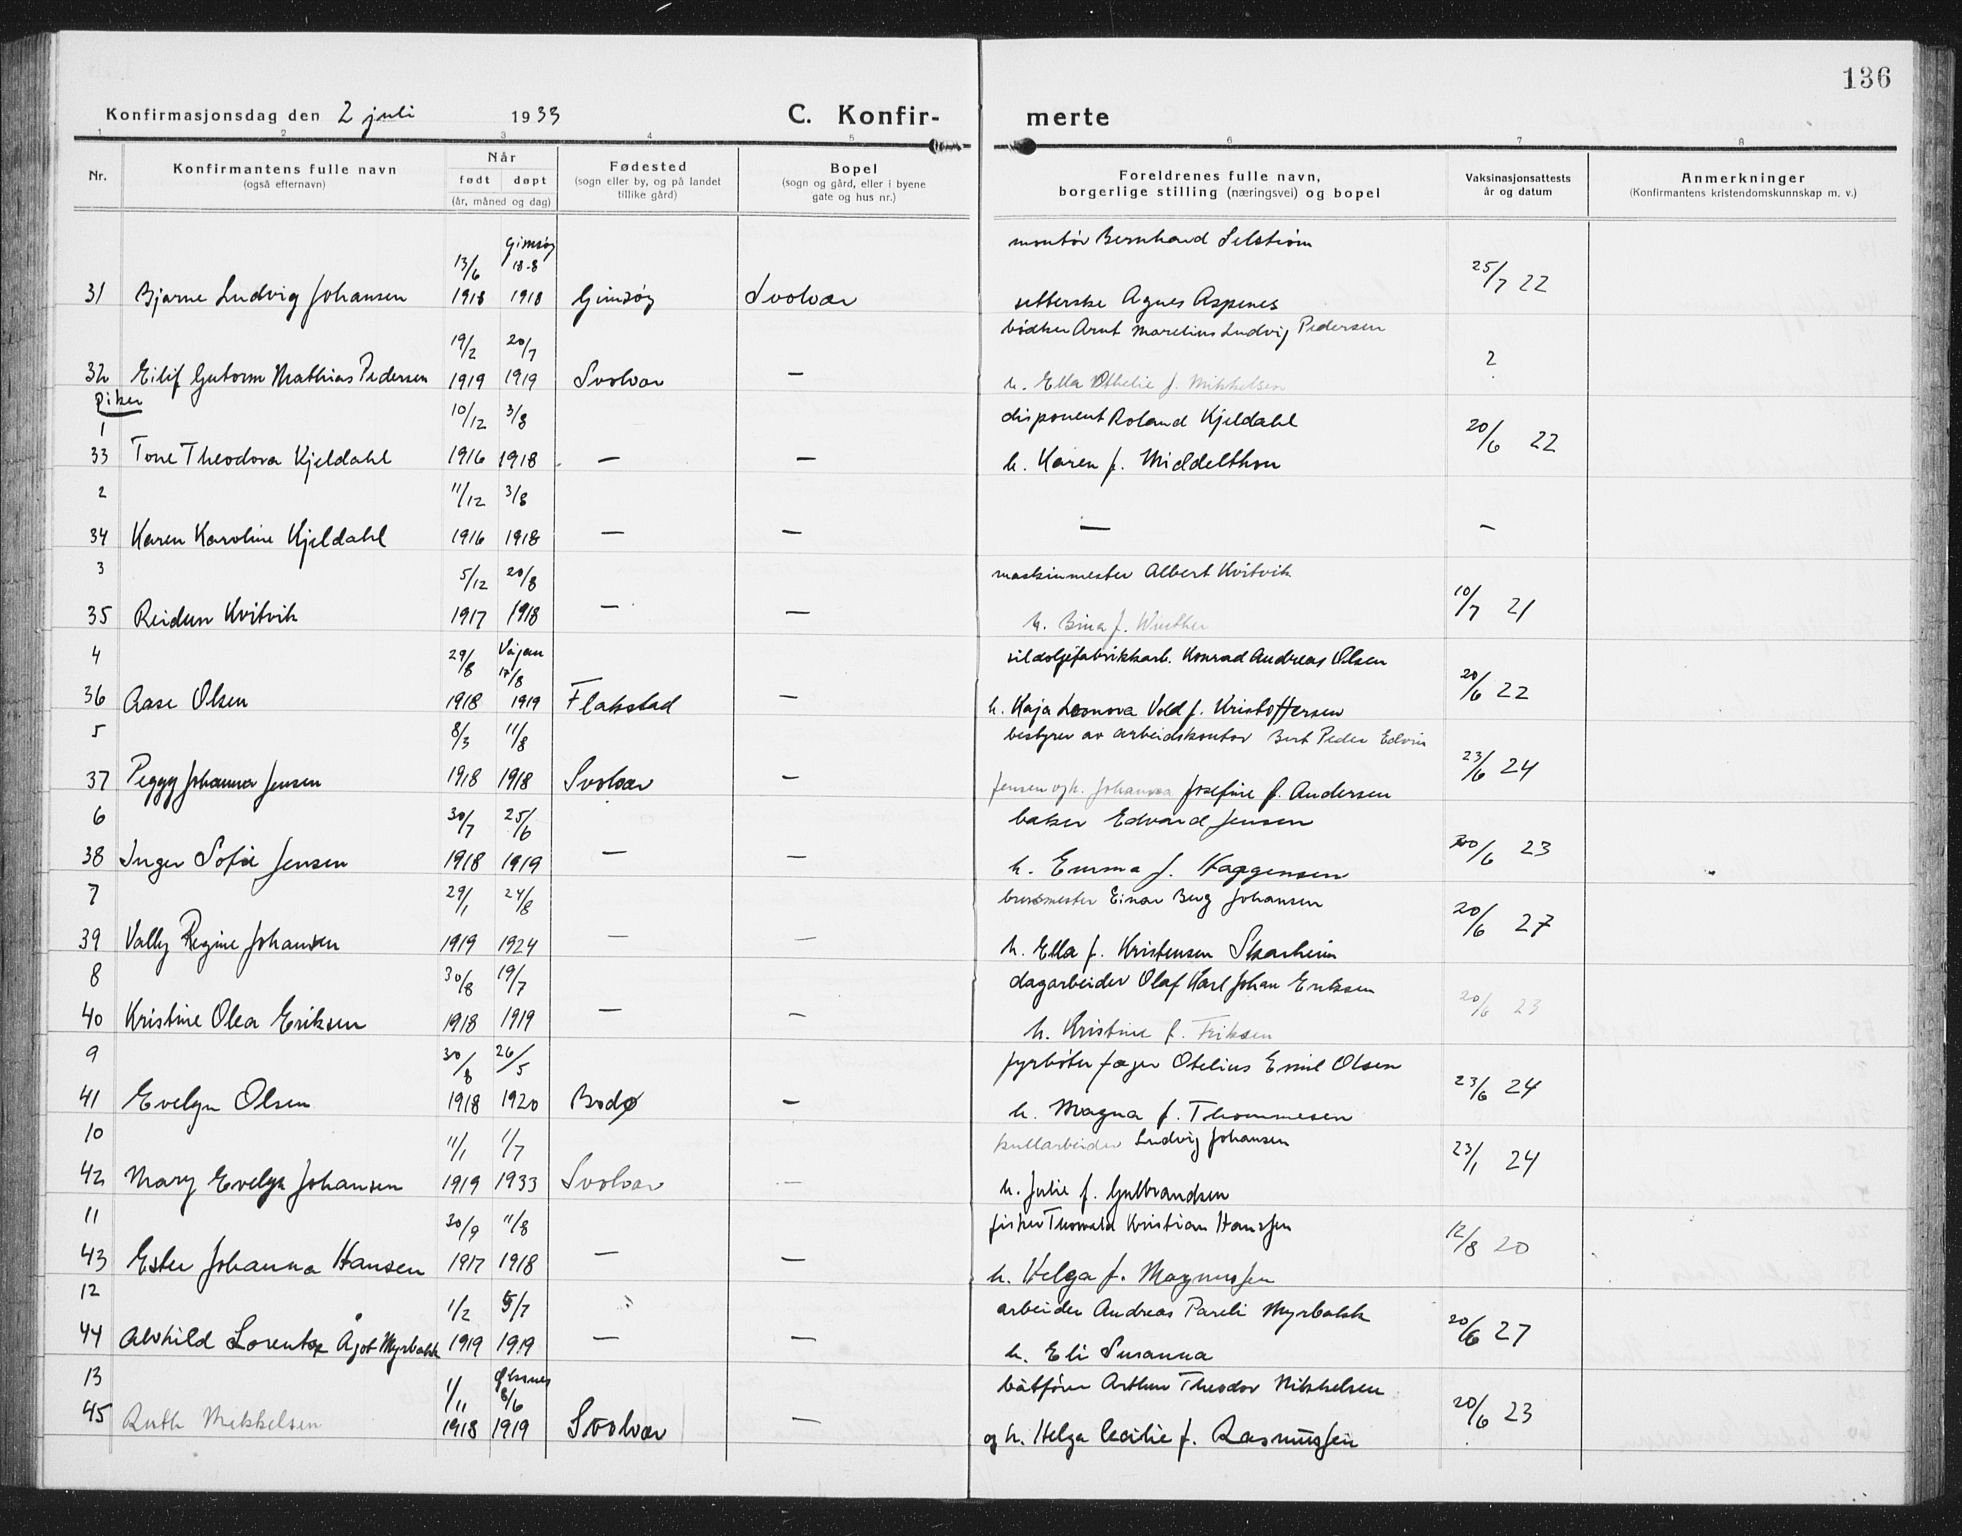 136
Konfirmasjonsdag den 2 juli 1933 C. Konfir- merte
1 2 3 4 5 6 7 8
Nr. Konfirmantens fulle navn (også efternavn) Når født døpt (år, måned og dag) Fødested (sogn eller by, og på landet tillike gård) Bopel (sogn og gård, eller i byene gate og hus nr.) Foreldrenes fulle navn, borgerlige stilling (næringsvei) og bopel Vaksinasjonsattests år og datum Anmerkninger (Konfirmantens kristendomskunnskap m. v.)
13/6 Gimsøy 18-8 montør Bernhard Selstrøm
31 Bjarne Ludvig Johansen 1918 1918 Gimsøy Svolvær Agnes Aspenes 25/7 22
19/2 20/7 bødker Arnt Marelius Ludvig Pedersen
32 Eilif Gutorm Mathias Pedersen 1919 1919 Svolvær — h. Ella Othelie f. Mikkelsen ?
piker
1 10/12 3/8 disponent Roland Kjeldahl
33 Tone Theodora Kjeldahl 1916 1918 — — h. Karen f. Middelthon 20/6 22
2 11/12 3/8
34 Karen Karoline Kjeldahl 1916 1918 — — — —
3 5/12 20/8 maskinmester Albert Kvitvik
35 Reidun Kvitvik 1917 1918 — — h. Bina f. Winther 10/7 21
4 29/8 Vågan 17/8 sildoljefabrikkarb. Konrad Andreas Olsen
36 Aase Olsen 1918 1919 Flakstad — h. Kaja Leonora Vold f. Kristoffersen 20/6 22
5 8/3 11/8 bestyrer av arbeidskontor Bert Peder Edvin
37 Peggy Johanna Jensen 1918 1918 Svolvær — Jensen og h. Johanna Josefine f. Andersen 23/6 24
6 30/7 25/6 baker Edvard Jensen
38 Inger Sofie Jensen 1918 1919 — — h. Emma f. Haggensen 20/6 23
7 29/1 24/8 Einar Berg Johansen
39 Vally Regine Johansen 1919 1924 — — h. Ella f. Kristensen Skarheim 20/6 27
8 30/8 19/7 dagarbeider Olaf Karl Johan Eriksen
40 Kristine Olea Eriksen 1918 1919 — — h. Kristine f. Eriksen 20/6 23
9 30/8 26/5 fyrbøter Jæger Otelius Emil Olsen
41 Evelyn Olsen 1918 1920 Bodø — h. Magna f. Thommesen 23/6 24
10 11/1 1/7 kullarbeider Ludvig Johansen
42 Mary Evelyn Johansen 1919 1933 Svolvær — h. Julie f. Gulbrandsen 23/1 24
11 30/9 11/8 fisker Thorvald Kristian Hanssen
43 Ester Johanna Hansen 1917 1918 — — h. Helga f. Magnussen 12/8 20
12 1/2 5/7 arbeider Andreas Pareli Myrbakk
44 Alvhild Lorentze Ågot Myrbakk 1919 1919 — — h. Eli Susanna 20/6 27
13 1/11 Øksnes 8/6 båtfører Arthur Theodor Mikkelsen
45 Ruth Mikkelsen 1918 1919 Svolvær — og h. Helga Cecilie f. Rasmussen 20/6 23